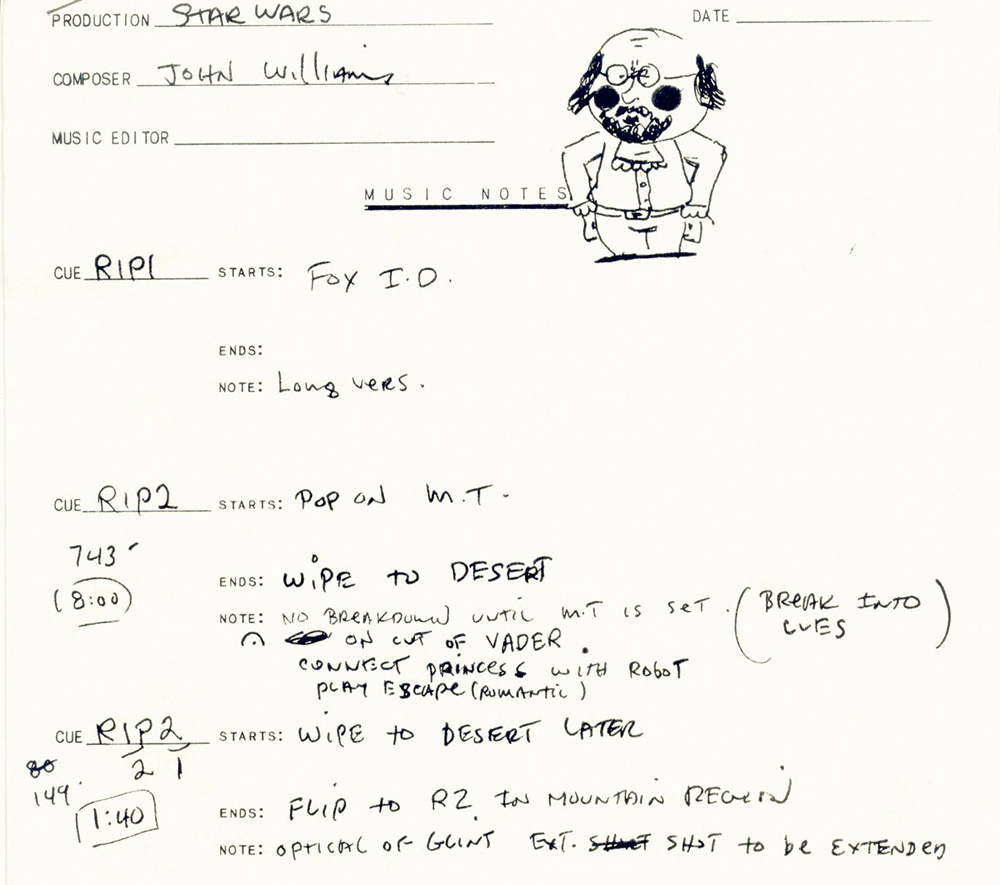 PRODUCTION STAR WARS DATE
COMPOSER JOHN Williams
MUSIC EDITOR
MUSIC NOTES
CUE R1P1 STARTS: FOX I.D.
ENDS:
NOTE: Long vers.
CUE R1P2 STARTS: POP ON M.T.
743
(8:00)
ENDS: WIPE to DESERT
NOTE: NO BREAKDOWN UNTIL M.T IS SET. (BREAK INTO CUES)
ON CUT OF VADER.
CONNECT PRINCESS WITH ROBOT
PLAY ESCAPE (ROMANTIC)
CUE R1P2 STARTS: WIPE to DESERT LATER
2 1
80
149
1:40
ENDS: FLIP to R2 IN MOUNTAIN REGION
NOTE: OPTICAL OF GLINT EXT. SHOT to be EXTENDED